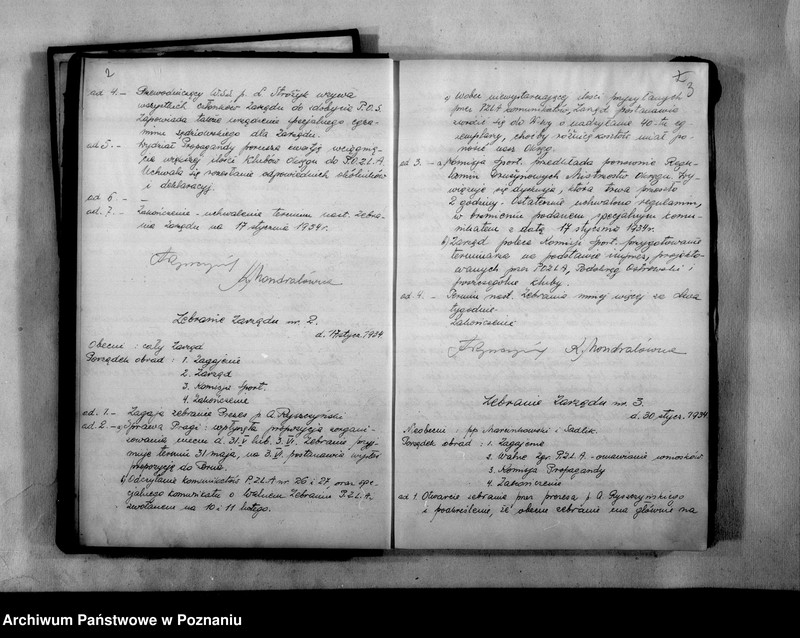 2
ad 4. - Przewodniczący Wydz. p. L. Stróżyk wzywa
wszystkich członków Zarządu do zdobycia P.O.S.
Zapowiada także urządzenie specjalnego egza-
minu sędziowskiego dla Zarządu.
ad 5. - Wydział Propagandy porusza kwestję wciągnię-
cia większej ilości klubów Okręgu do P.O.Z.L.A.
Uchwała rozesłania odpowiednich okólników
i deklaracyj.
ad 6 - -
ad. 7. - Zakończenie - uchwalenie terminu nast. Zebra-
nia Zarządu na 17 stycznia 1934 r.
Zebranie Zarządu nr. 2.
d. 17 stycz. 1934
Obecni: cały Zarząd
Porządek obrad: 1. Zagajenie
2. Zarząd
3. Komisja Sport.
4. Zakończenie
ad. 1. - Zagaja zebranie Prezes p A Ryszczyński
ad. 2 - a) Sprawa Pragi: wpłynęła propozycja zorgani-
zowania meczu d. 31.V lub 3.VI. Zebranie przyj-
muje termin 31 maja, na 3.VI. postanawia wysłać
propozycję do Brna.
b) Odczytanie komunikatów P.Z.L.A. nr. 26 i 27 oraz spe-
cjalnego komunikatu o Walnem Zebraniu P.Z.L.A.
zwołanem na 10 i 11 lutego.
3
c) Wobec niewystarczającej ilości przysyłanych
przez PZLA komunikatów, Zarząd postanawia
zwrócić się do W-wy o nadsyłanie 40-tu eg-
zemplarzy, choćby różnicę kosztów miał po-
nosić nasz Okręg.
ad 3. - a) Komisja Sport. przedkłada ponownie Regu-
lamin Drużynowych Mistrzostw Okręgu. Wy-
więzuje się dyskusja, która trwa przeszło
2 godziny. Ostatecznie uchwalono regulamin,
w brzmieniu podanem specjalnym komu-
nikatem z datą 17 stycznia 1934 r.
b) Zarząd poleca Komisji Sport. przygotowanie
terminarza na podstawie imprez, projekto-
wanych przez POZLA, Podokręg Ostrowski i
poszczególne kluby.
ad 4. - Termin nast. Zebrania mniej więcej za dwa
tygodnie.
Zakończenie
Zebranie Zarządu nr. 3.
d. 30. stycz. 1934
Nieobecni: pp. Marynkowski i Sadlik.
Porządek obrad: 1. Zagajenie
2. Walne Zgr. P.Z.L.A. - omawianie wniosków
3. Komisja Propagandy
4. Zakończenie
ad 1. Otwarcie zebrania przez prezesa p A. Ryszczyńskiego
i podkreślenie, że obecne zebranie ma głównie na
Archiwum Państwowe w Poznaniu